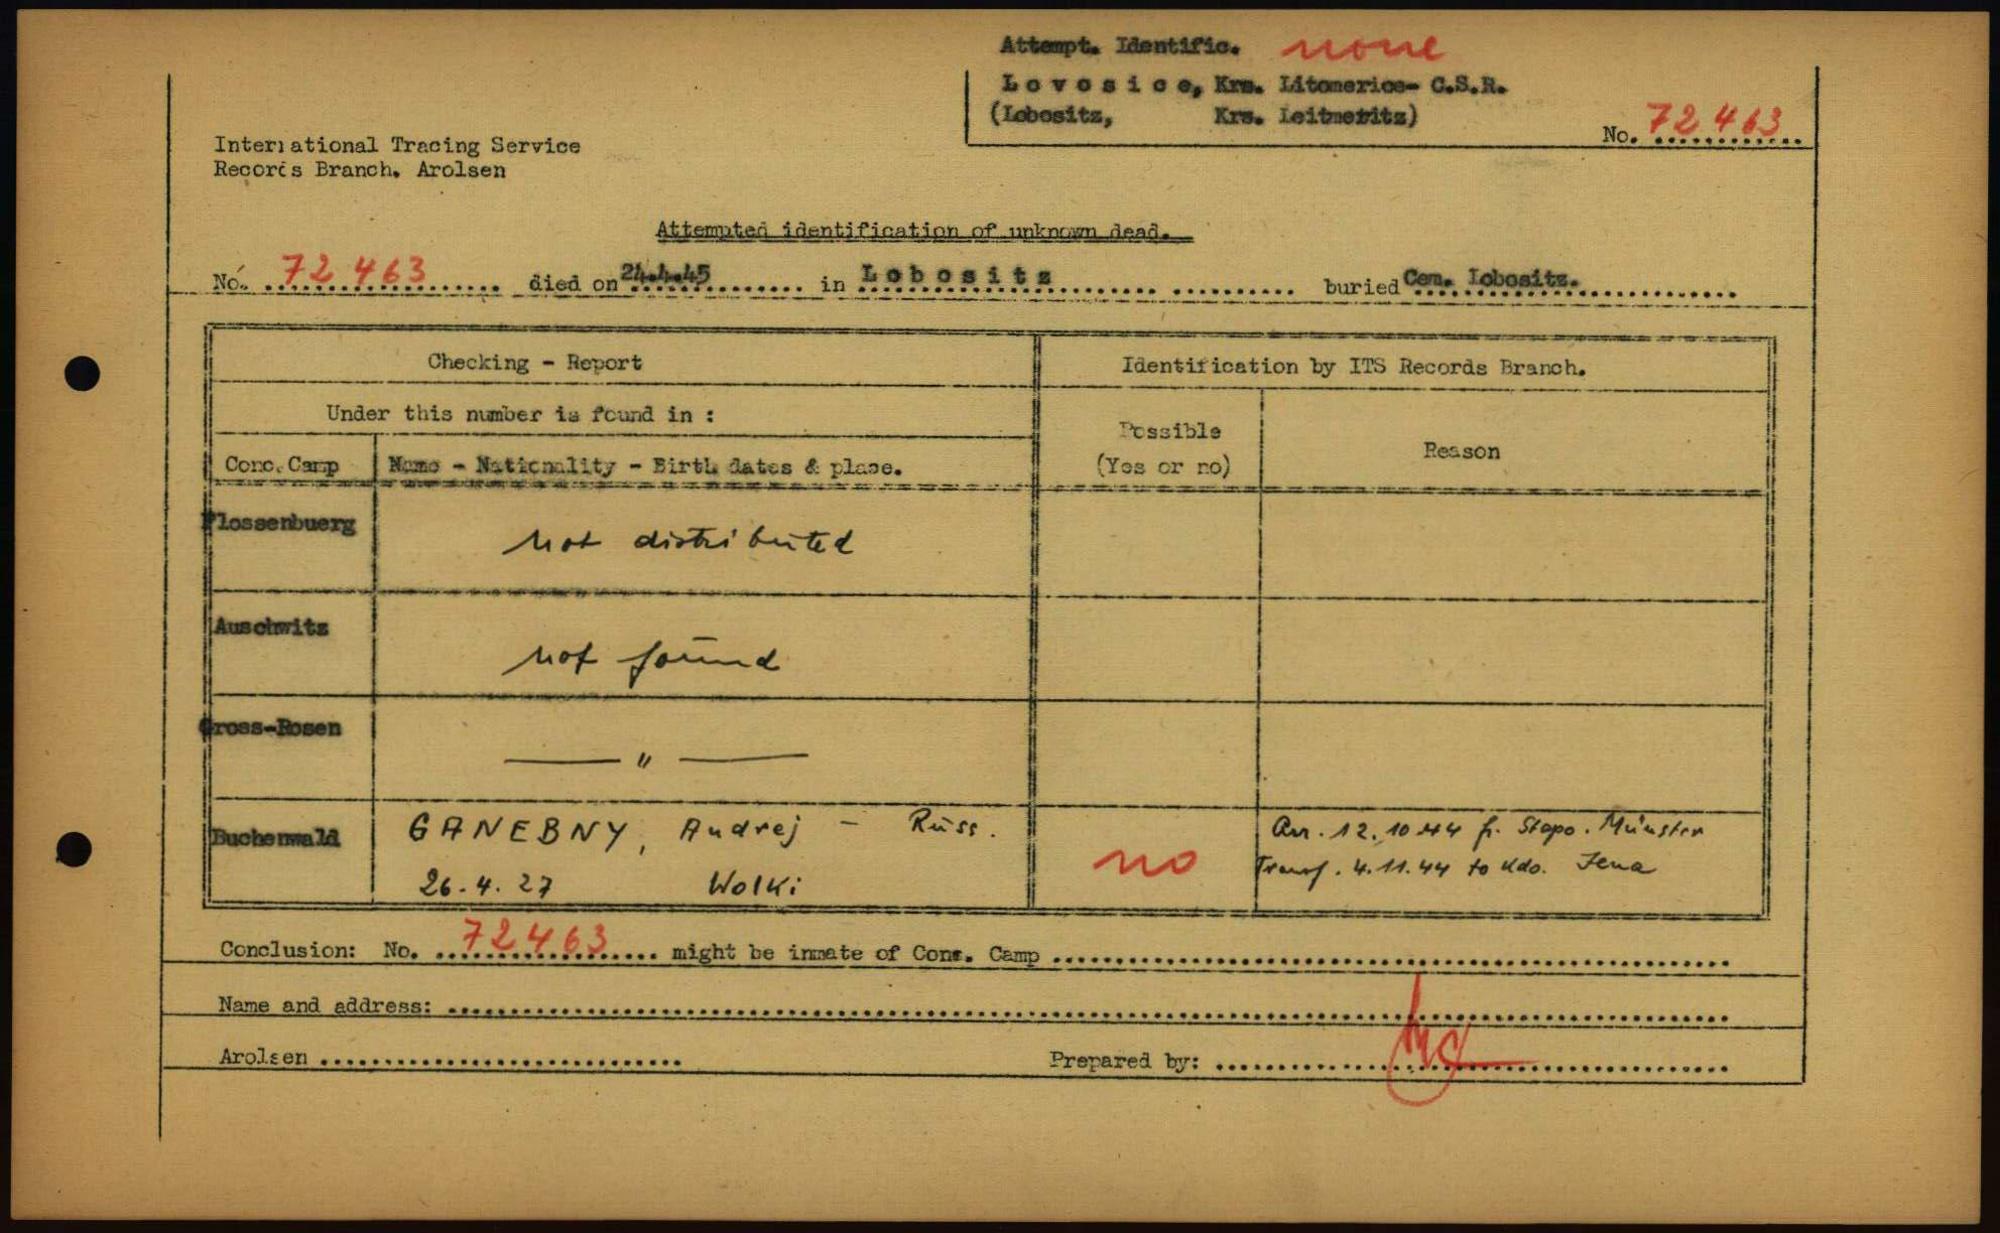 Attempt. Identific. none
L o v o s i c e, Krs. Litomerice- C.S.R.
(Lobositz, Krs. Leitmeritz)
No. 72 463
International Tracing Service
Records Branch. Arolsen
Attempted identification of unknown dead.
No. 72 463 died on 24.4.45 in L o b o s i t z buried Cem. Lobositz.
Checking - Report
Identification by ITS Records Branch.
Under this number is found in :
Possible
(Yes or no)
Reason
Conc. Camp Name - Nationality - Birth dates & place.
Flossenbuerg
not distributed
Auschwitz
not found
Gross-Rosen
——— " ———
Buchenwald
GANEBNY, Andrej - Russ.
26.4.27 Wolki
no
Arr. 12.10.44 fr. Stapo. Münster
Transf. 4.11.44 to Kdo. Jena
Conclusion: No. 72 463 might be inmate of Conc. Camp
Name and address:
Arolsen
Prepared by: